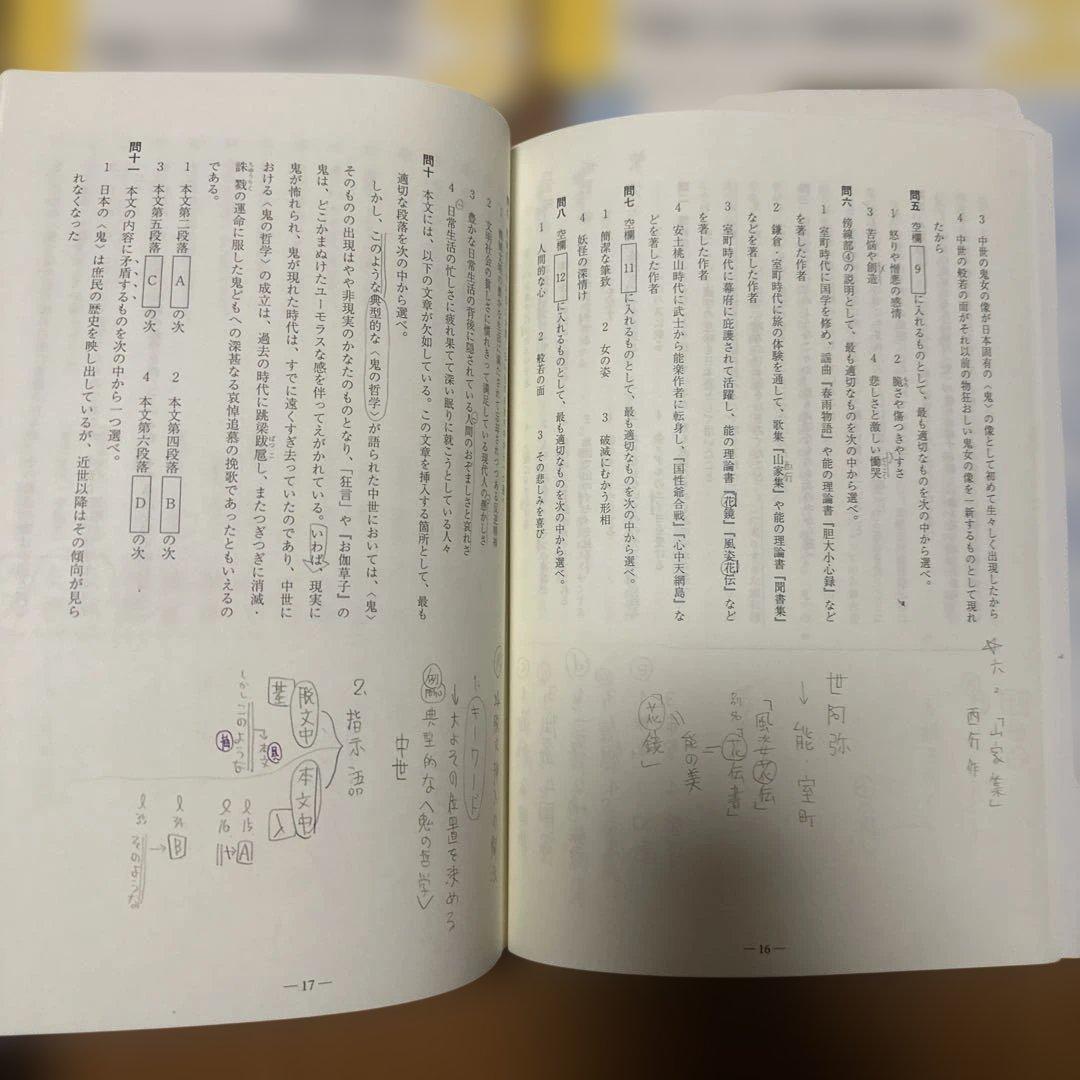 3 中世の鬼女の像が日本固有の〈鬼〉の像として初めて生々しく出現したから
4 中世の般若の面がそれ以前の物狂おしい鬼女の像を一新するものとして現れ
たから
問五 空欄 9 に入れるものとして、最も適切なものを次の中から選べ。
1 怒りや憎悪の感情 2 脆さや傷つきやすさ
3 苦悩や創造 4 悲しさと激しい慟哭
問六 傍線部④の説明として、最も適切なものを次の中から選べ。
1 室町時代に国学を修め、謡曲『春雨物語』や能の理論書『胆大小心録』など
を著した作者
2 鎌倉・室町時代に旅の体験を通して、歌集『山家集』や能の理論書『聞書集』
などを著した作者
3 室町時代に幕府に庇護されて活躍し、能の理論書『花鏡』『風姿花伝』など
を著した作者
4 安土桃山時代に武士から能楽作者に転身し、『国性爺合戦』『心中天網島』な
どを著した作者
問七 空欄 11 に入れるものとして、最も適切なものを次の中から選べ。
1 簡潔な筆致 2 女の姿 3 破滅にむかう形相
4 妖怪の深情け
問八 空欄 12 に入れるものとして、最も適切なものを次の中から選べ。
1 人間的な心 2 般若の面 3 その悲しみを喜び
六 2 「山家集」
西行作
世阿弥
↓ 能・室町
「風姿花伝」
別名「花伝書」
能の美
「花鏡」
—16—
2 文明社会の貧しさに慣れきって満足している現代人の愚かしさ
3 豊かな日常生活の背後に隠されている人間のおぞましさと哀れさ
4 日常生活の忙しさに疲れ果てて深い眠りに就こうとしている人々
問十 本文には、以下の文章が欠如している。この文章を挿入する箇所として、最も
適切な段落を次の中から選べ。
しかし、このような典型的な〈鬼の哲学〉が語られた中世においては、〈鬼〉
そのものの出現はやや非現実のかなたのものとなり、「狂言」や『お伽草子』の
鬼は、どこかまぬけたユーモラスな感を伴ってえがかれている。いわば、現実に
鬼が怖れられ、鬼が現れた時代は、すでに遠くすぎ去っていたのであり、中世に
おける〈鬼の哲学〉の成立は、過去の時代に跳梁跋扈し、またつぎつぎに消滅・
誅戮の運命に服した鬼どもへの深甚なる哀悼追慕の挽歌であったともいえるの
である。
1 本文第二段落 A の次 2 本文第四段落 B の次
3 本文第五段落 C の次 4 本文第六段落 D の次
問十一 本文の内容に矛盾するものを次の中から一つ選べ。
1 日本の〈鬼〉は庶民の歴史を映し出しているが、近世以降はその傾向が見ら
れなくなった
1. キーワード
↓ 大よその位置を決める
例 問10 典型的な〈鬼の哲学〉
中世
2. 指示語
脱文中
本文中
しかし このような
本文
l 15 A
l 16
l 34 → B
l 35 そのような
—17—